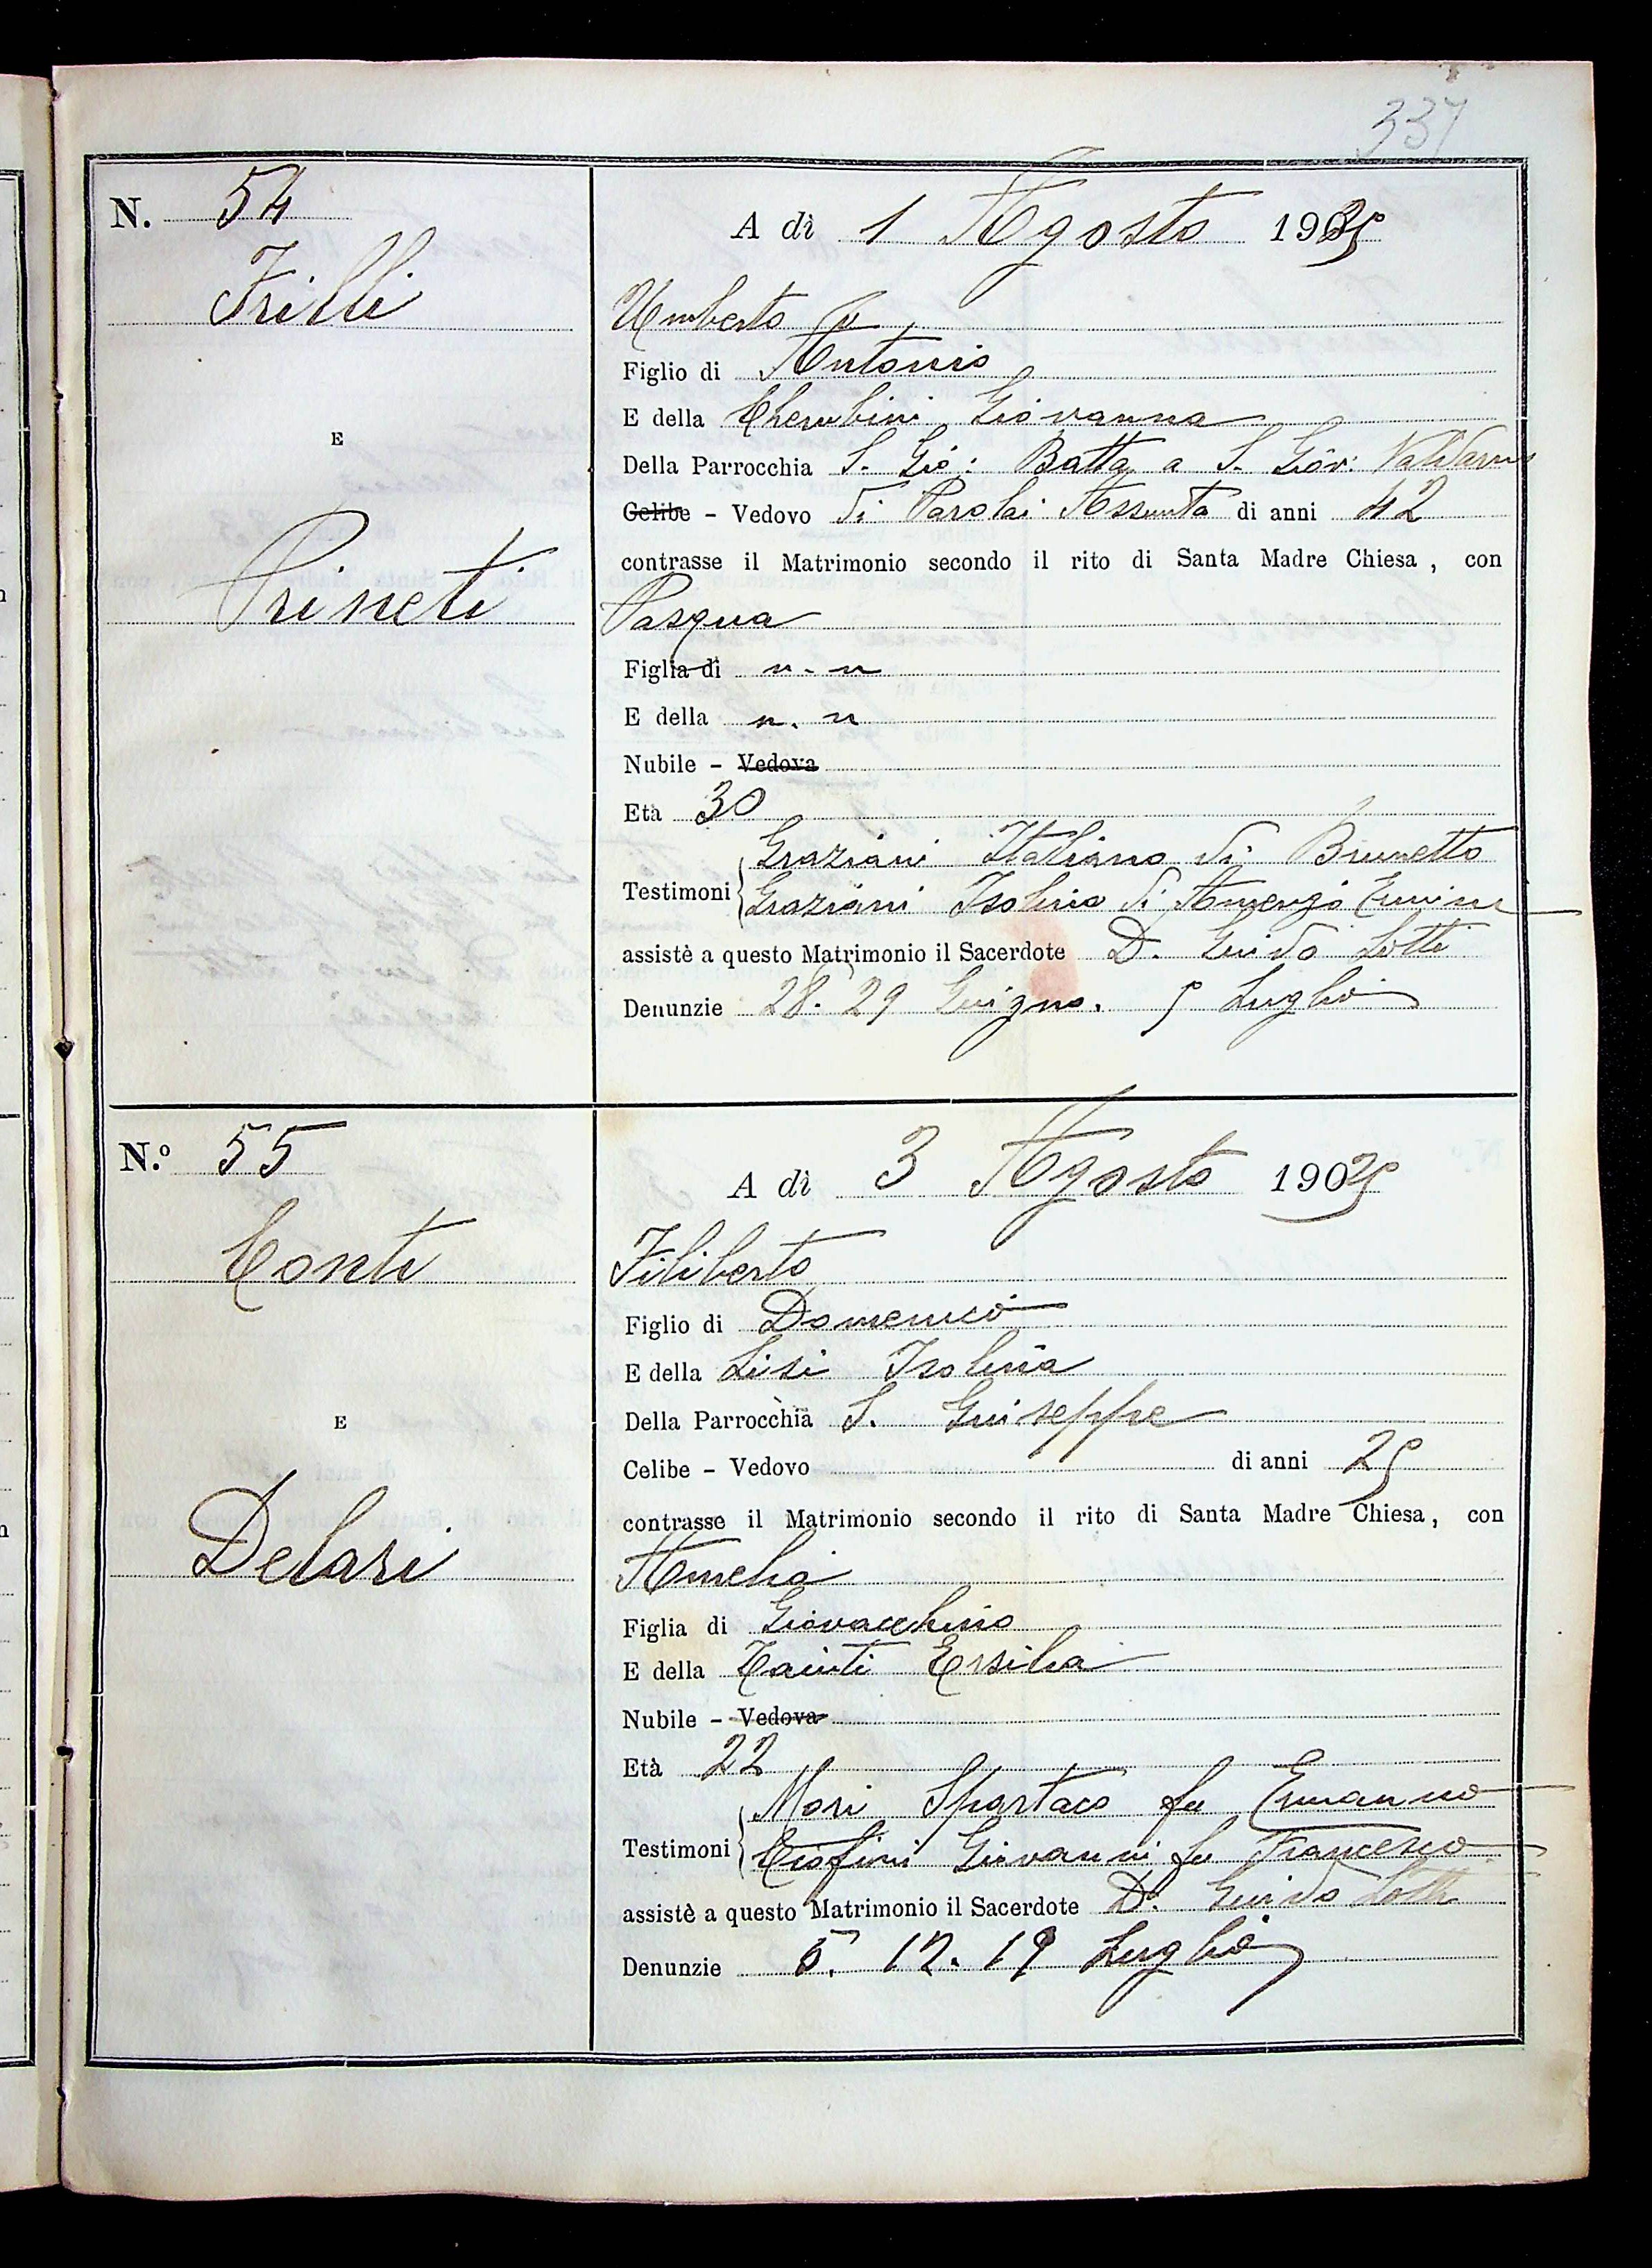 337
N. 54
A dì 1 Agosto 1925
Frilli
Umberto
Figlio di Antonio
E della Cherubini Giovanna
E
Della Parrocchia S. Gio: Batta a S. Giov: Valdarno
Celibe - Vedovo di Parolai Assunta di anni 42
contrasse il Matrimonio secondo il rito di Santa Madre Chiesa, con
Prineti
Pasqua
Figlia di n. n
E della n. n
Nubile - Vedova
Età 30
Graziani Italiano di Brunetto
Testimoni Graziani Isolina di Amerigo
assistè a questo Matrimonio il Sacerdote D. Guido Lotti
Denunzie 28. 29 Guigno. 5 Luglio
N.º 55
A dì 3 Agosto 1925
Conti
Filiberto
Figlio di Domenico
E della Lisi Isolina
E
Della Parrocchia S. Guiseppe
Celibe - Vedovo di anni 25
contrasse il Matrimonio secondo il rito di Santa Madre Chiesa, con
Delari
Amelia
Figlia di Giovacchino
E della Ersilia
Nubile - Vedova
Età 22
Mori Spartaco fu Ermanno
Testimoni Ciofini Giovanni fu Francesco
assistè a questo Matrimonio il Sacerdote D. Guido Lotti
Denunzie 5. 12. 19 Luglio